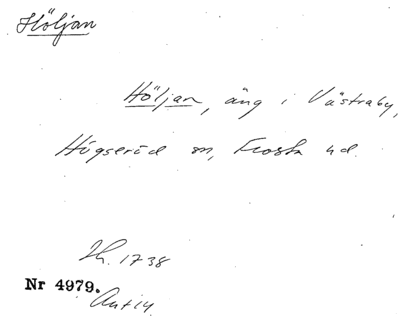 Höljan
Höljan, äng i Västraby,
Högseröd sn, Frosta hd.
Lh. 1738
Nr 4979.